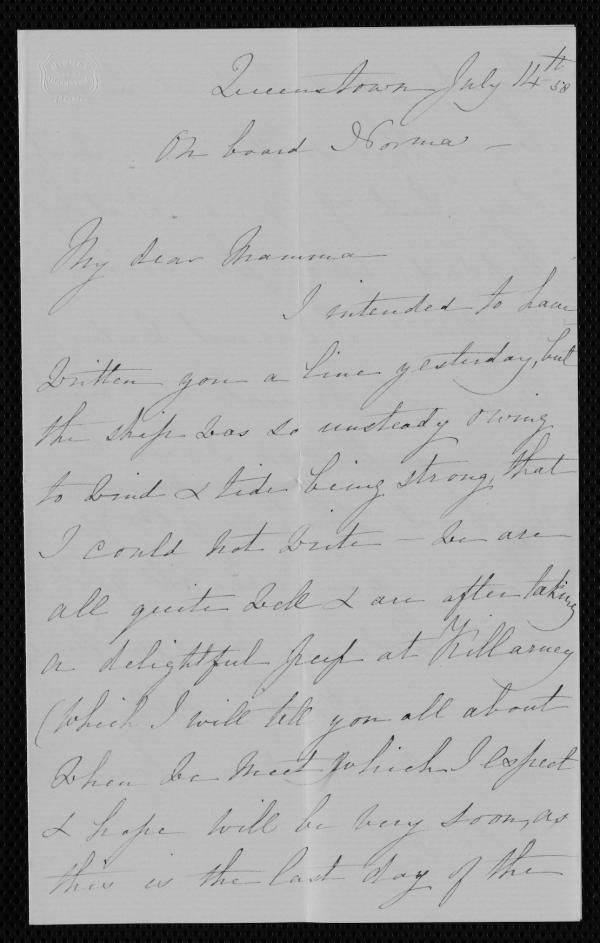 Queenstown July 14th 58
On board Norma —
My dear Mamma
I intended to have
written you a line yesterday, but
the ship was so unsteady owing
to wind & tide being strong, that
I could not write — we are
all quite well & are after taking
a delightful peep at Killarney
(which I will tell you all about
when we meet) which I expect
& hope will be very soon, as
this is the last day of the